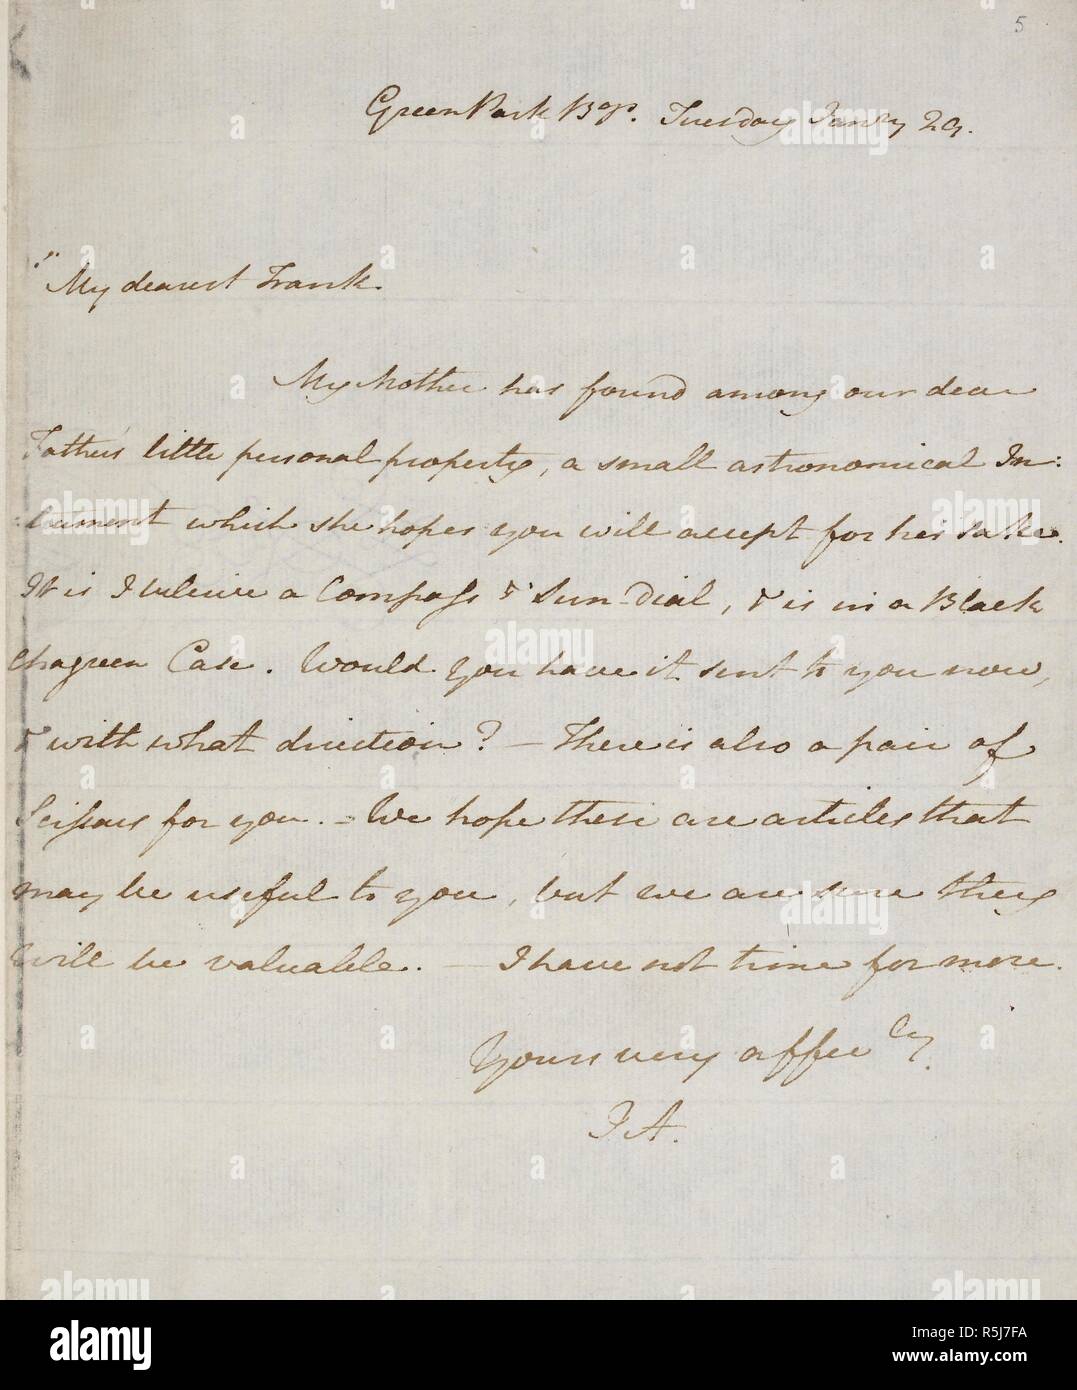 5
Green Park Bgs. Tuesday Janry 29.
"My dearest Frank.
My Mother has found among our dear
Father's little personal property, a small astronomical In:
:strument which she hopes you will accept for his sake.
It is I believe a Compass & Sun-dial, & is in a Black
chagreen Case. Would you have it sent to you now,
& with what direction? — There is also a pair of
Scissars for you. — We hope these are articles that
may be useful to you, but we are sure they
will be valuable. — I have not time for more.
Yours very affec ly.
J A.
alamy
Image ID: R5J7FA
www.alamy.com